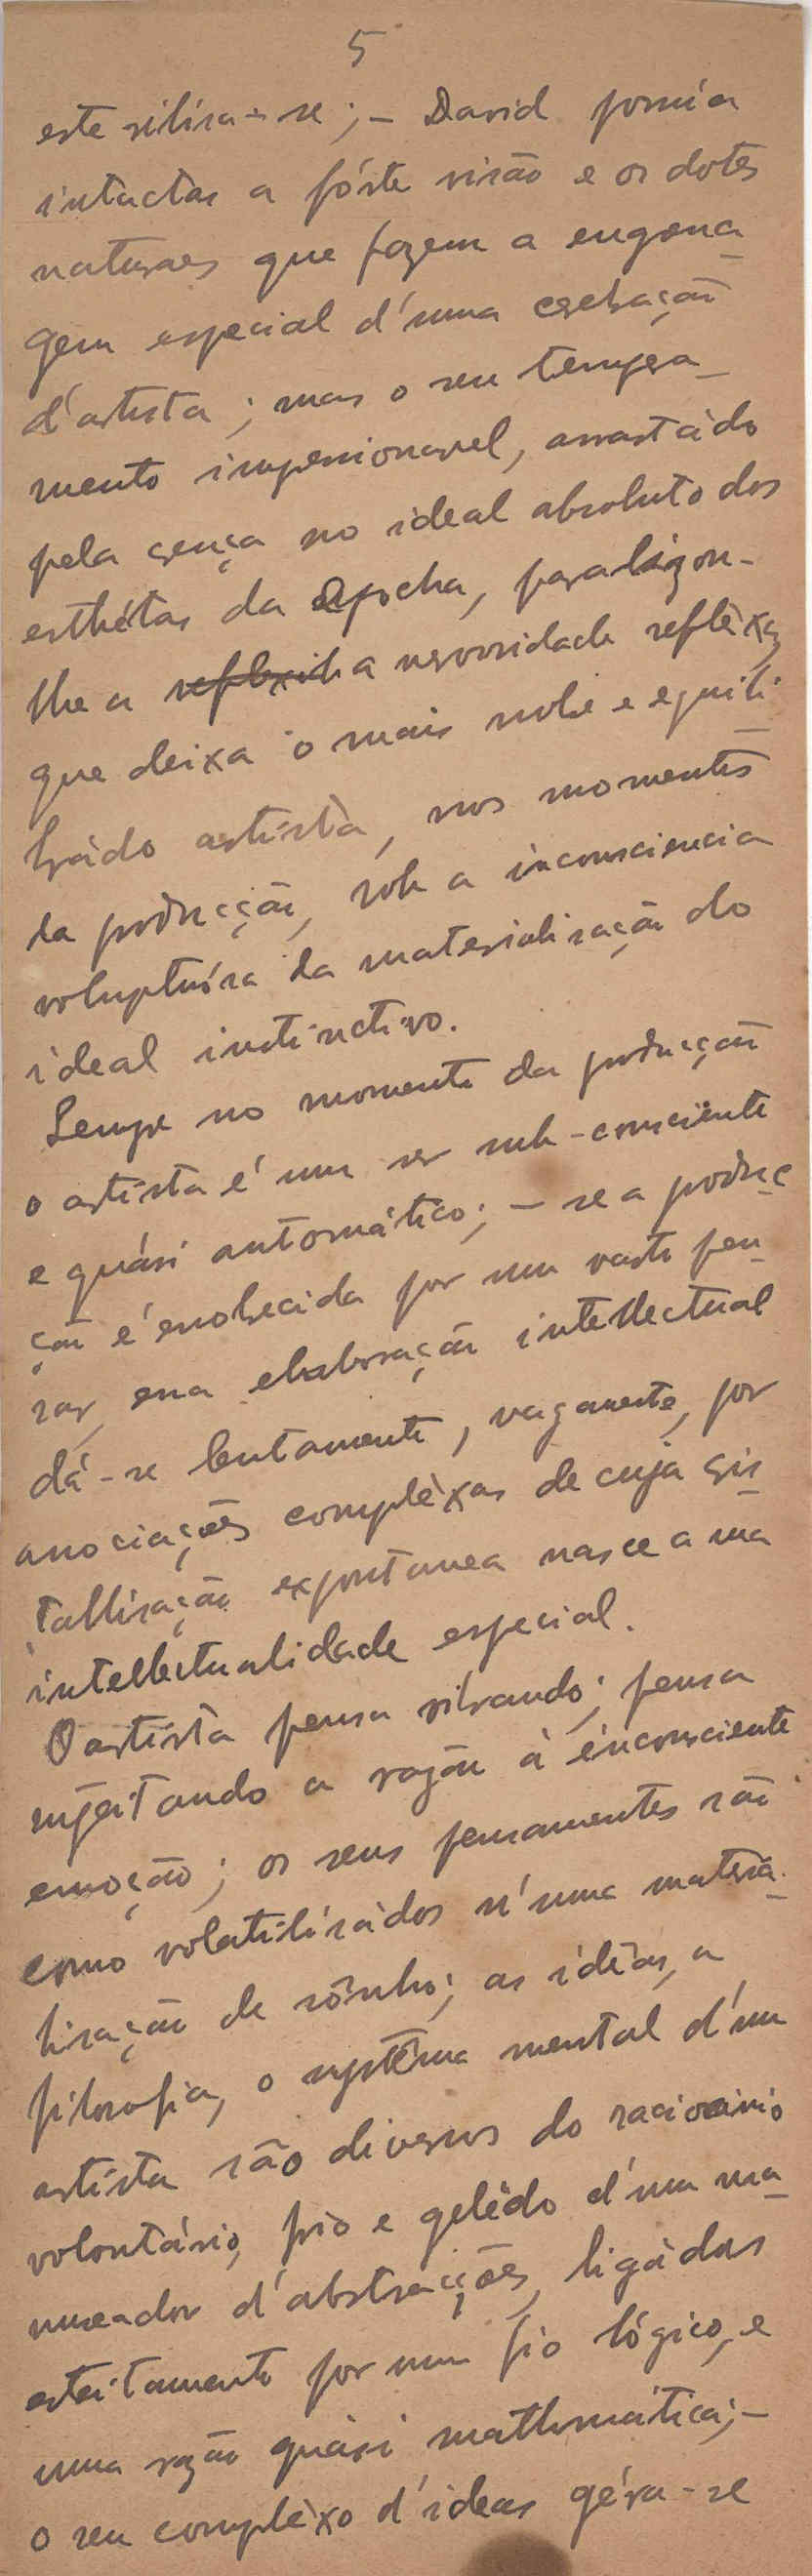 5
esterilisa-se; – David possúía
intactas a fórte visão e os dotes
naturaes que fazem a engrena_
gem especial d'uma cerebração
d'artista; mas o seu tempera_
mento impressionavel, arrastádo
pela crença no ideal absoluto dos
esthétas da Epocha, paralizou-
lhe a a nervosidade reflèxa,
que deixa o mais nobre e equili_
brádo artista, nos momentos
da producção, sob a inconsciencia
voluptuósa da materialisação do
ideal instinctivo.
Sempre no momento da producção
o artista é um ser sub-consciente
e quási automático; – se a produc_
ção é enobrecida por um vasto pen_
sar, essa elaboração intellectual
dá-se lentamente, vagamente, por
associações complèxas de cuja cris_
tallisação expontanea nasce a sua
intellectualidade especial.
O artista pensa vibrando; pensa
sujeitando a razão á inconsciente
emoção; os seus pensamentos são
como volatilisádos n'uma materia_
lisação de sônho; as idéas, a
filosofia, o systêma mental d'um
artista são diversos do raciocinio
volontário, frio e geládo d'um ma_
nuseador d'abstracções, ligádas
estreitamente por um fio lógico, e
uma razão quási mathemática; –
o seu complèxo d'ideas géra-se